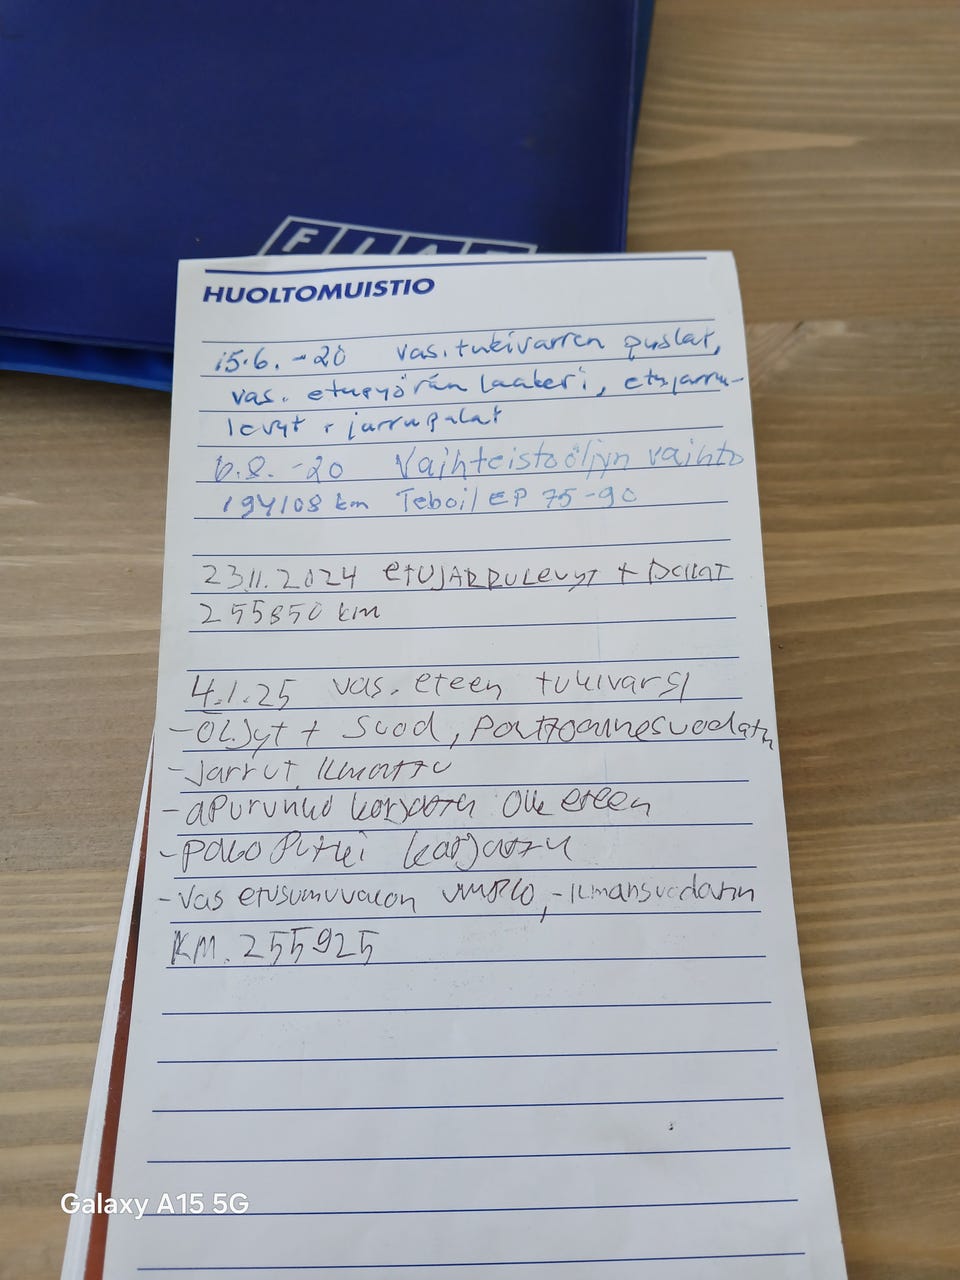 FIAT
HUOLTOMUISTIO
15.6. -20 vas. tukivarren puslat,
vas. etupyörän laakeri, etujarru-
levyt + jarrupalat
6.8. -20 Vaihteistoöljyn vaihto
194108 km Teboil EP 75-90
23.11.2024 ETUJARRULEVYT + PALAT
255850 km
4.1.25 vas. eteen tukivarsi
- ÖLJyt + Suod, Polttoainesuodatin
- Jarrut ilmattu
- apurunko korjattu oik eteen
- pako Putki korjattu
- Vas etusumuvalon umpio, - Ilmansuodatin
KM. 255925
Galaxy A15 5G